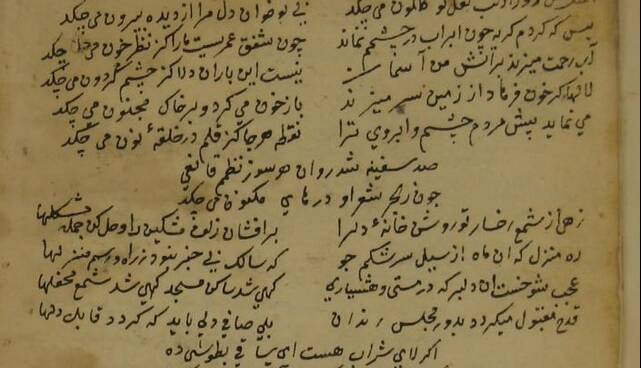 لعل تو گلگون می چکد دل مرا از دیده بیرون می چکد
بس که کردم گریه چون ابر آب در چشمم نماند چون شفق عمریست ما را کز نظر خون می چکد
آب رحمت میزند بر آتش من آسمان نیست این باران دلا کز چشم گردون می چکد
لالها کز خون فرهاد از زمین سر میزند باز خون می گردد و بر خاک مجنون می چکد
می نماید پیش مردم چشم و ابروی ترا نقطه هر جا کز قلم در حلقهٔ نون می چکد
صد سفینه شد روان هر سو ز نظم
چون ز بحر شعر او درهای مکنون می چکد
زهی از شمع رخسار تو روشن خانهٔ دلها برافشان زلف مشکین را و حل کن جمله مشکلها
ره منزل که آن ماه از سیل سرشکم جو که سالک بی خبر نبود ز راه و رسم منزلها
عجب شوخست آن دلبر که در مستی و هشیاری گهی شد ساکن مسجد گهی شد شمع محفلها
قدح مقبول میگردد بدور مجلس رندان بلی صافی دلی باید که گردد قابل دلها
اگر لای شراب هست ای ساقی ده